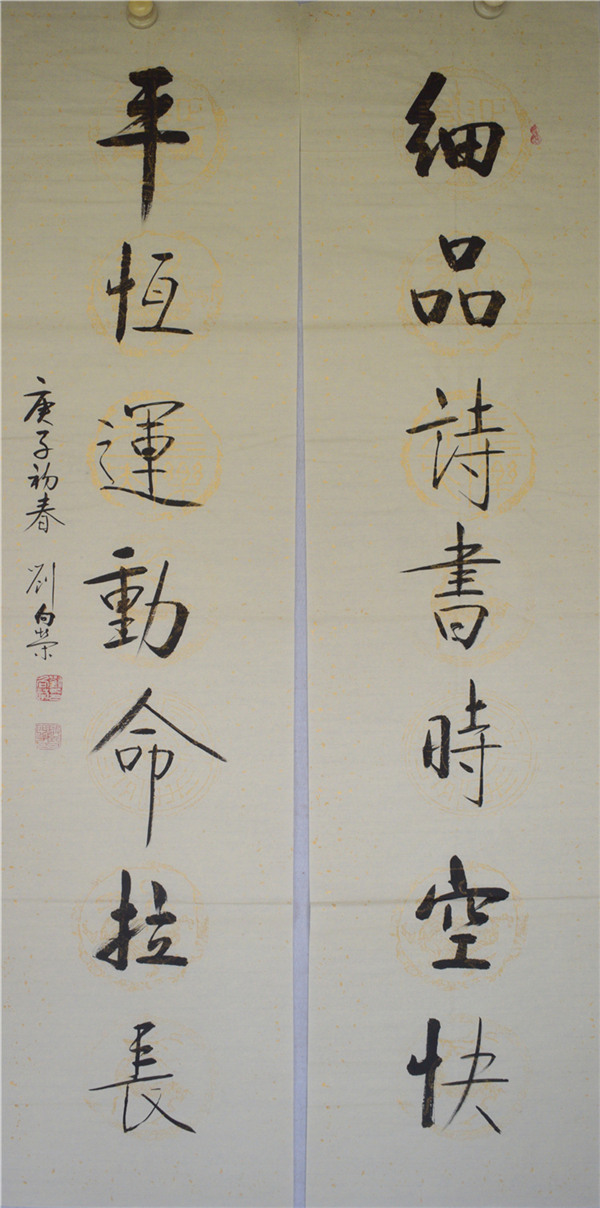 細品詩書時空快
平恆運動命拉長
庚子初春 劉向榮